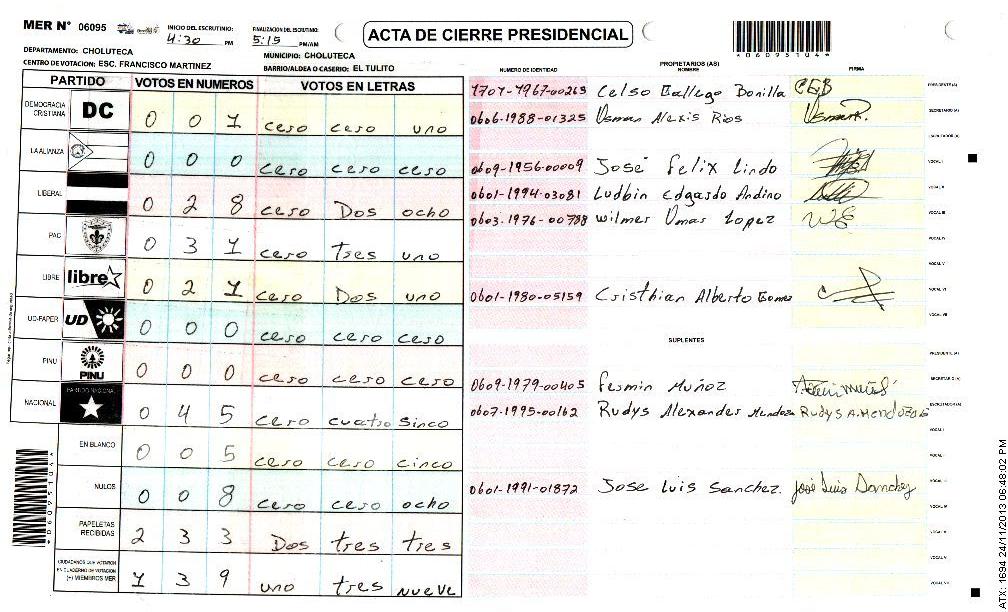 MER N° 06095
INICIO DEL ESCRUTINIO: 4:30 PM
FINALIZACION DEL ESCRUTINIO: 5:15 PM/AM
ACTA DE CIERRE PRESIDENCIAL
*06095104*
DEPARTAMENTO: CHOLUTECA
MUNICIPIO: CHOLUTECA
CENTRO DE VOTACION: ESC. FRANCISCO MARTINEZ
BARRIO/ALDEA O CASERIO: EL TULITO
PARTIDO VOTOS EN NUMEROS VOTOS EN LETRAS
DEMOCRACIA CRISTIANA DC 0 0 1 cero cero uno
LA ALIANZA 0 0 0 cero cero cero
LIBERAL 0 2 8 cero Dos ocho
PAC 0 3 1 cero tres uno
LIBRE libre 0 2 1 cero Dos uno
UD-FAPER UD 0 0 0 cero cero cero
PINU PINU 0 0 0 cero cero cero
NACIONAL PARTIDO NACIONAL 0 4 5 cero cuatro sinco
EN BLANCO 0 0 5 cero cero cinco
NULOS 0 0 8 cero cero ocho
PAPELETAS RECIBIDAS 2 3 3 Dos tres tres
CIUDADANOS QUE VOTARON EN CUADERNO DE VOTACION (+) MIEMBROS MER 1 3 9 uno tres nueve
*06095104*
NUMERO DE IDENTIDAD PROPIETARIOS (AS) NOMBRE FIRMA
1707-1967-00263 Celso Gallego Bonilla CGB PRESIDENTE (A)
0606-1988-01325 Usman Alexis Rios SECRETARIO (A)
ESCRUTADOR (A)
0609-1956-00009 José Felix Lindo VOCAL I
0601-1994-03081 Ludbin Edgardo Andino VOCAL II
0603-1976-00788 Wilmer Omar Lopez VOCAL III
VOCAL IV
VOCAL V
0601-1980-05159 Cristhian Alberto Gomez VOCAL VI
VOCAL VII
SUPLENTES
PRESIDENTE (A)
0609-1979-00405 Fermin Muñoz SECRETARIO (A)
0607-1995-00162 Rudys Alexander Mendoza Rudys A. Mendoza ESCRUTADOR (A)
VOCAL I
0601-1991-01872 Jose Luis Sanchez. José Luis Sanchez
VOCAL V
ATX: 1694 24/11/2013 06:48:02 PM